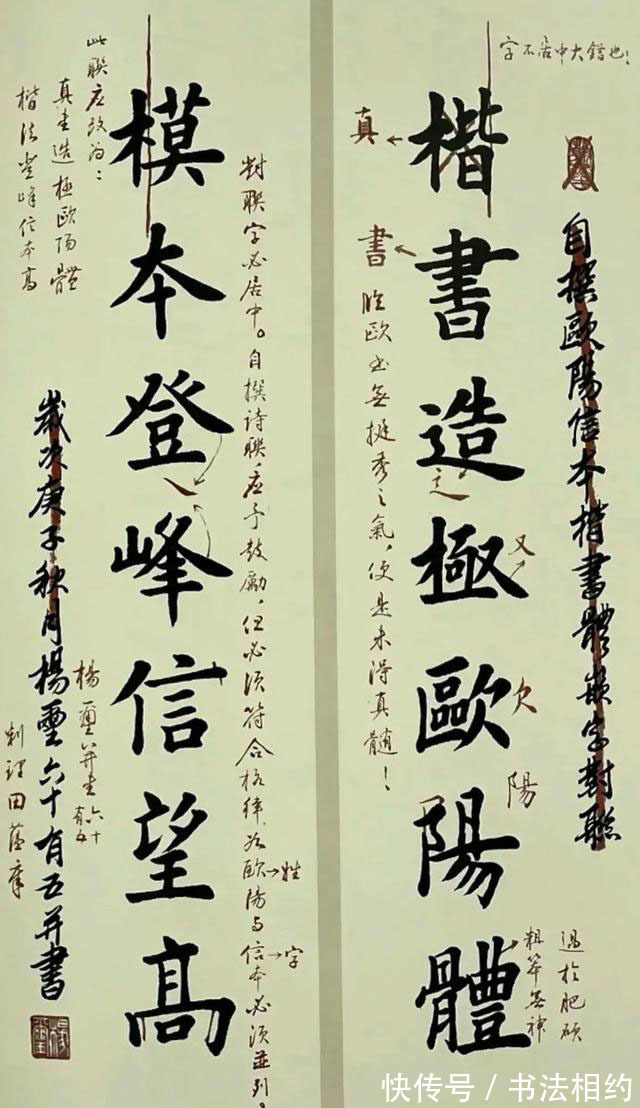 字不居中大錯也！
自撰歐陽信本楷書體嵌字對聯
楷書造極歐陽體
真
書
又
欠
陽
過於肥碩
粗笨無神
臨歐書無挺秀之氣，便是未得真髓！
模本登峰信望高
對聯字必居中。自撰詩聯，應予鼓勵，但必須符合格律，如歐陽与信本必須並列。
姓
字
此聯應改為：
真書造極歐陽體
楷法登峰信本高
歲次庚子秋月楊璽六十有五并書
楊璽并書
六十有五
田蘊章
快传号 / 书法相约